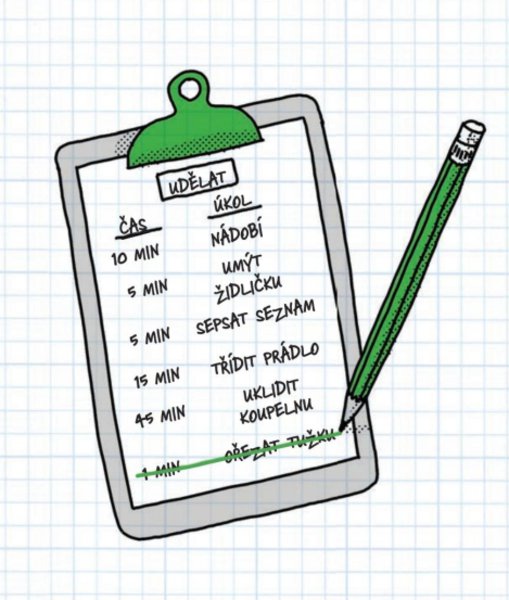 UDĚLAT
ČAS ÚKOL
10 MIN NÁDOBÍ
5 MIN UMÝT
ŽIDLIČKU
5 MIN SEPSAT SEZNAM
15 MIN TŘÍDIT PRÁDLO
45 MIN UKLIDIT
KOUPELNU
1 MIN OŘEZAT TUŽKU